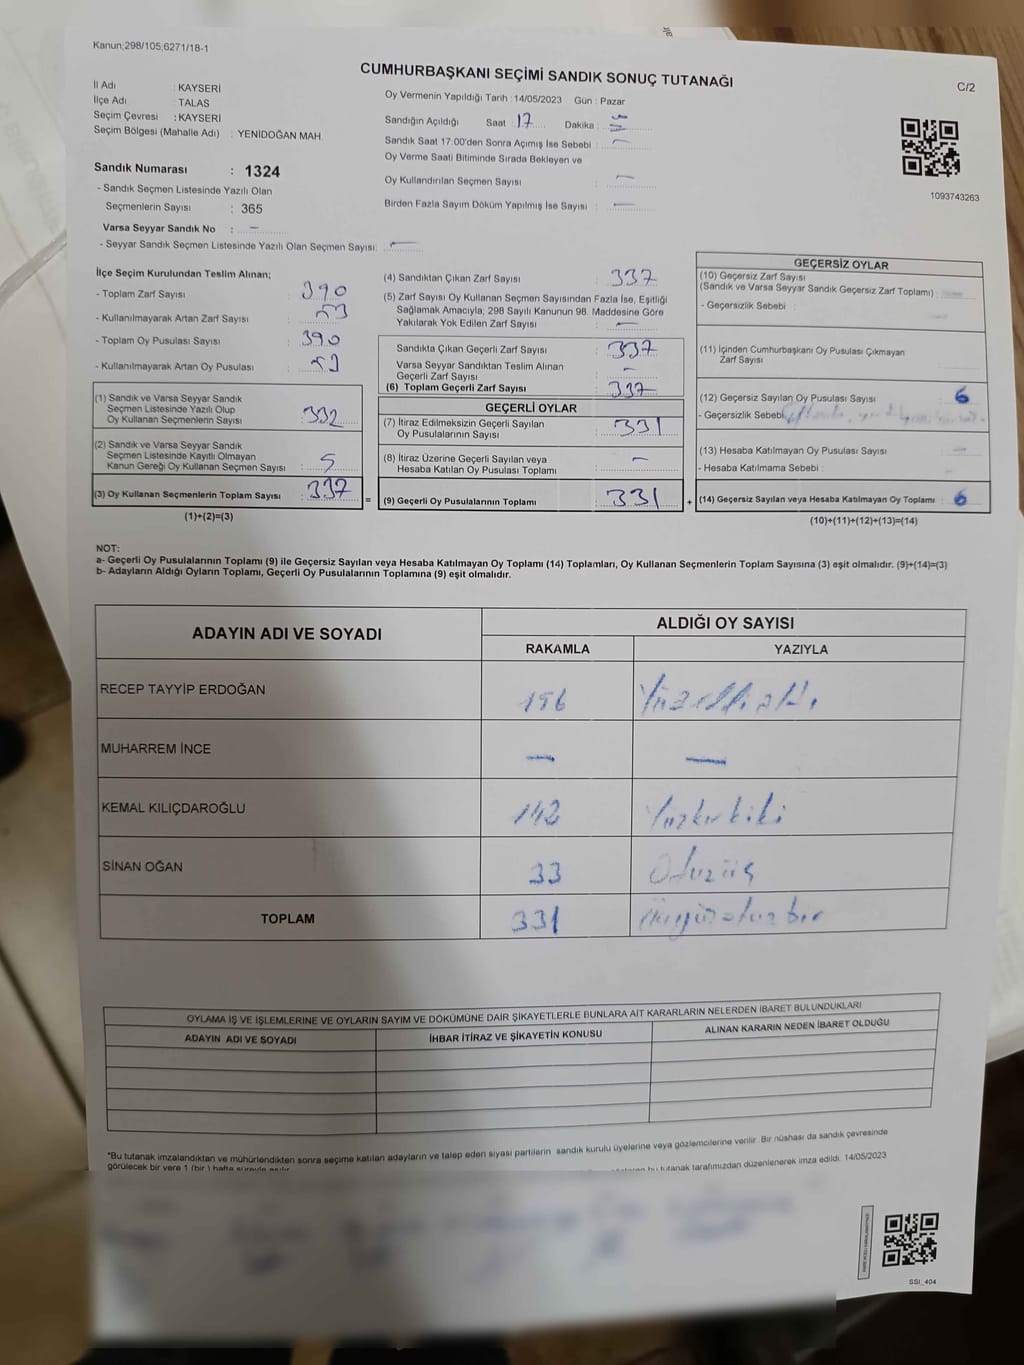 Kanun;298/105,6271/18-1
CUMHURBAŞKANI SEÇİMİ SANDIK SONUÇ TUTANAĞI
C/2
İl Adı : KAYSERİ
İlçe Adı : TALAS
Seçim Çevresi : KAYSERİ
Seçim Bölgesi (Mahalle Adı) : YENİDOĞAN MAH.
Sandık Numarası : 1324
- Sandık Seçmen Listesinde Yazılı Olan
Seçmenlerin Sayısı : 365
Varsa Seyyar Sandık No : -
- Seyyar Sandık Seçmen Listesinde Yazılı Olan Seçmen Sayısı: -
Oy Vermenin Yapıldığı Tarih : 14/05/2023 Gün : Pazar
Sandığın Açıldığı Saat : 17 Dakika :
Sandık Saat 17:00'den Sonra Açımış İse Sebebi : -
Oy Verme Saati Bitiminde Sırada Bekleyen ve
Oy Kullandırılan Seçmen Sayısı : -
Birden Fazla Sayım Döküm Yapılmış İse Sayısı : -
1093743263
İlçe Seçim Kurulundan Teslim Alınan;
- Toplam Zarf Sayısı : 390
- Kullanılmayarak Artan Zarf Sayısı : 53
- Toplam Oy Pusulası Sayısı : 390
- Kullanılmayarak Artan Oy Pusulası : 53
(1) Sandık ve Varsa Seyyar Sandık
Seçmen Listesinde Yazılı Olup
Oy Kullanan Seçmenlerin Sayısı : 332
(2) Sandık ve Varsa Seyyar Sandık
Seçmen Listesinde Kayıtlı Olmayan
Kanun Gereği Oy Kullanan Seçmen Sayısı : 5
(3) Oy Kullanan Seçmenlerin Toplam Sayısı : 337
(1)+(2)=(3)
=
(4) Sandıktan Çıkan Zarf Sayısı : 337
(5) Zarf Sayısı Oy Kullanan Seçmen Sayısından Fazla İse, Eşitliği
Sağlamak Amacıyla; 298 Sayılı Kanunun 98. Maddesine Göre
Yakılarak Yok Edilen Zarf Sayısı : -
Sandıkta Çıkan Geçerli Zarf Sayısı : 337
Varsa Seyyar Sandıktan Teslim Alınan
Geçerli Zarf Sayısı : -
(6) Toplam Geçerli Zarf Sayısı : 337
GEÇERLİ OYLAR
(7) İtiraz Edilmeksizin Geçerli Sayılan
Oy Pusulalarının Sayısı : 331
(8) İtiraz Üzerine Geçerli Sayılan veya
Hesaba Katılan Oy Pusulası Toplamı : -
(9) Geçerli Oy Pusulalarının Toplamı : 331
+
GEÇERSİZ OYLAR
(10) Geçersiz Zarf Sayısı
(Sandık ve Varsa Seyyar Sandık Geçersiz Zarf Toplamı) :
- Geçersizlik Sebebi :
(11) İçinden Cumhurbaşkanı Oy Pusulası Çıkmayan
Zarf Sayısı :
(12) Geçersiz Sayılan Oy Pusulası Sayısı : 6
- Geçersizlik Sebebi
(13) Hesaba Katılmayan Oy Pusulası Sayısı : -
- Hesaba Katılmama Sebebi :
(14) Geçersiz Sayılan veya Hesaba Katılmayan Oy Toplamı : 6
(10)+(11)+(12)+(13)=(14)
NOT:
a- Geçerli Oy Pusulalarının Toplamı (9) ile Geçersiz Sayılan veya Hesaba Katılmayan Oy Toplamı (14) Toplamları, Oy Kullanan Seçmenlerin Toplam Sayısına (3) eşit olmalıdır. (9)+(14)=(3)
b- Adayların Aldığı Oyların Toplamı, Geçerli Oy Pusulalarının Toplamına (9) eşit olmalıdır.
ADAYIN ADI VE SOYADI
ALDIĞI OY SAYISI
RAKAMLA YAZIYLA
RECEP TAYYİP ERDOĞAN 156 Yüzellialtı
MUHARREM İNCE - -
KEMAL KILIÇDAROĞLU 142 Yüzkırkiki
SİNAN OĞAN 33 Otuzüç
TOPLAM 331 Üçyüzotuzbir
OYLAMA İŞ VE İŞLEMLERİNE VE OYLARIN SAYIM VE DÖKÜMÜNE DAİR ŞİKAYETLERLE BUNLARA AİT KARARLARIN NELERDEN İBARET BULUNDUKLARI
ADAYIN ADI VE SOYADI İHBAR İTİRAZ VE ŞİKAYETİN KONUSU ALINAN KARARIN NEDEN İBARET OLDUĞU
*Bu tutanak imzalandıktan ve mühürlendikten sonra seçime katılan adayların ve talep eden siyasi partilerin sandık kurulu üyelerine veya gözlemcilerine verilir. Bir nüshası da sandık çevresinde
görülecek bir yere 1 (bir) hafta süreyle asılır. bu tutanak tarafımızdan düzenlenerek imza edildi. 14/05/2023
SSİ_404